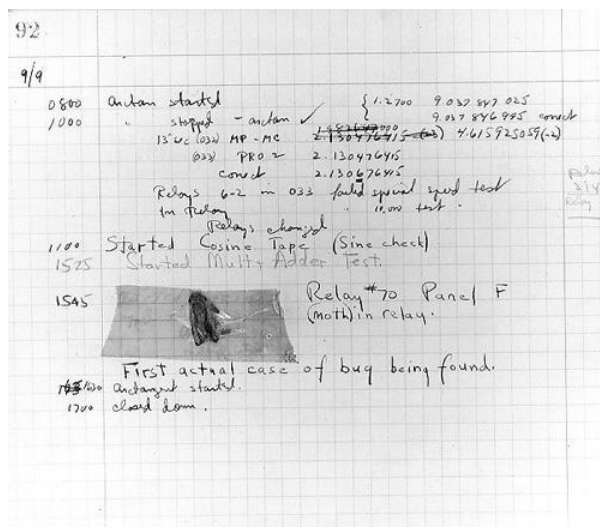 92
9/9
0800 Antan started { 1.2700 9.037 847 025
1000 " stopped - antan ✓ 9.037 846 995 correct
13"uc (032) MP - MC 2.130476415 (-3) 4.615925059(-2)
(033) PRO 2 2.130476415
correct 2.130676415
Relays 6-2 in 033 failed special speed test
in Relay " 10.000 test .
Relays changed
1100 Started Cosine Tape (Sine check)
1525 Started Mult+Adder Test.
1545 Relay #70 Panel F
(moth) in relay.
First actual case of bug being found.
1630 antangent started.
1700 closed down.